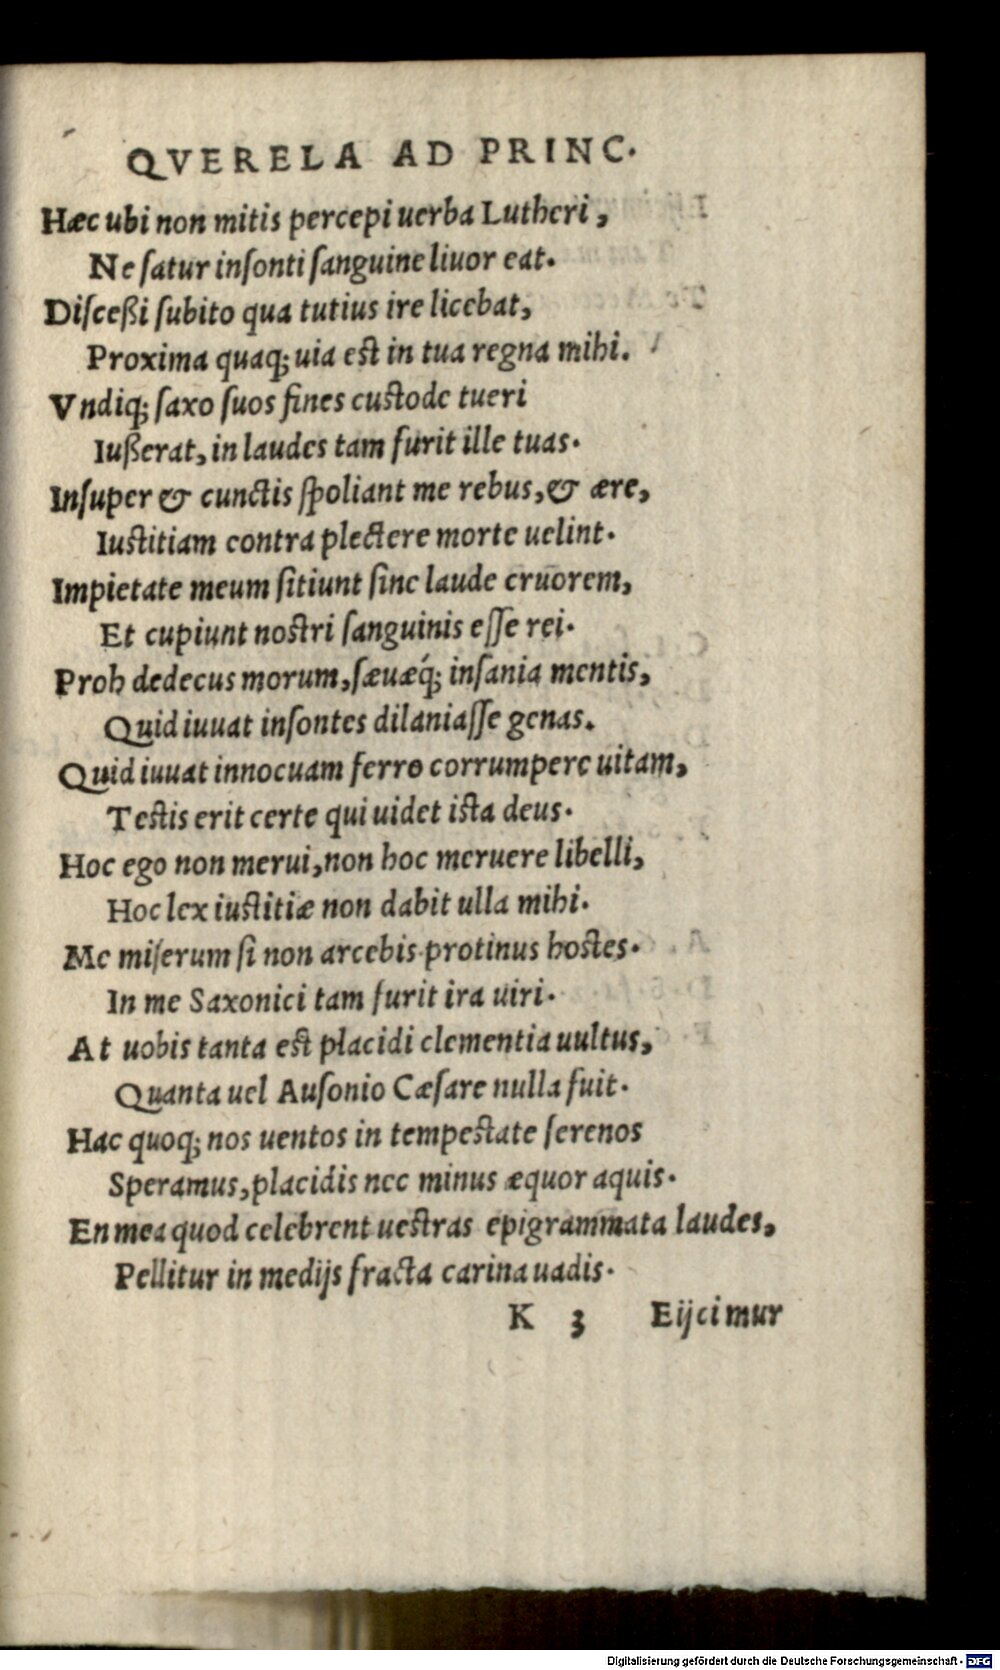 QVERELA AD PRINC.
Hæc ubi non mitis percepi uerba Lutheri,
Ne ſatur inſonti ſanguine liuor eat.
Diſceßi ſubito qua tutius ire licebat,
Proxima quaq; uia est in tua regna mihi.
Vndiq; ſaxo ſuos fines custode tueri
Iußerat, in laudes tam furit ille tuas.
Inſuper & cunctis ſpoliant me rebus, & ære,
Iustitiam contra plectere morte uelint.
Impietate meum ſitiunt ſine laude cruorem,
Et cupiunt nostri ſanguinis eſſe rei.
Proh dedecus morum, ſæuæq́; inſania mentis,
Quid iuuat inſontes dilaniaſſe genas.
Quid iuuat innocuam ferro corrumpere uitam,
Testis erit certe qui uidet ista deus.
Hoc ego non merui, non hoc meruere libelli,
Hoc lex iustitiæ non dabit ulla mihi.
Me miſerum ſi non arcebis protinus hostes.
In me Saxonici tam furit ira uiri.
At uobis tanta est placidi clementia uultus,
Quanta uel Auſonio Cæſare nulla fuit.
Hac quoq; nos uentos in tempestate ſerenos
Speramus, placidis nec minus æquor aquis.
En mea quod celebrent uestras epigrammata laudes,
Pellitur in medijs fracta carina uadis.
K 3 Eijcimur
Digitalisierung gefördert durch die Deutsche Forschungsgemeinschaft - DFG